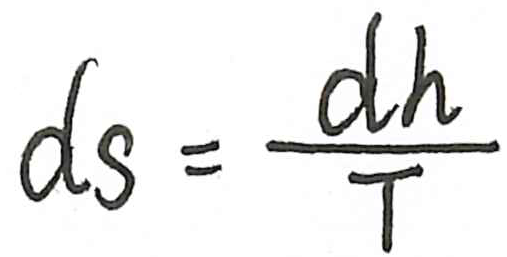 ds = dh/T